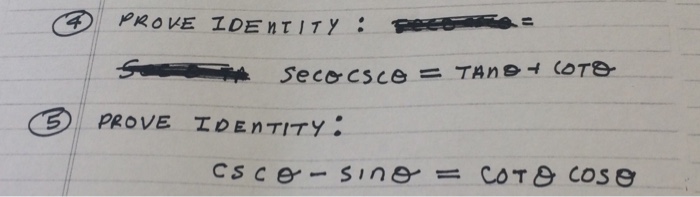 ④ PROVE IDENTITY : =
secθcscθ = TANθ + COTθ
⑤ PROVE IDENTITY :
cscθ - sinθ = COTθ COSθ